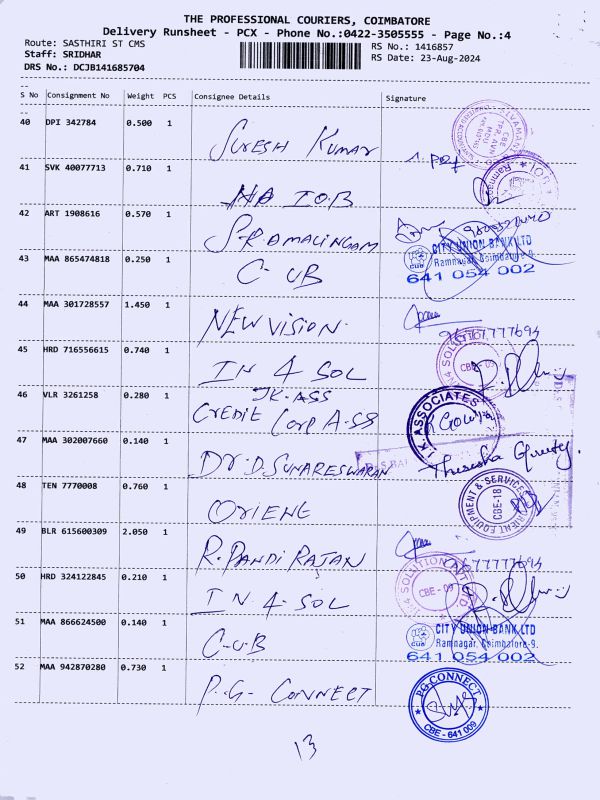 THE PROFESSIONAL COURIERS, COIMBATORE
Delivery Runsheet - PCX - Phone No.:0422-3505555 - Page No.:4
Route: SASTHIRI ST CMS
Staff: SRIDHAR
DRS No.: DCJB141685704
RS No.: 1416857
RS Date: 23-Aug-2024
S No Consignment No Weight PCS Consignee Details Signature
40 DPI 342784 0.500 1 SURESH KUMAR
41 SVK 40077713 0.710 1 HA IOB
42 ART 1908616 0.570 1 S.RAMALINGAM
43 MAA 865474818 0.250 1 C-UB
CITY UNION BANK LTD
CUB Ramnagar, Coimbatore-9.
641 054 002
44 MAA 301728557 1.450 1 NEW VISION
45 HRD 716556615 0.740 1 IN 4 SOL
CBE-09
46 VLR 3261258 0.280 1 JK-ASS
CREDIT Corp A-SS
J.K ASSOCIATES
47 MAA 302007660 0.140 1 Dr.D.SUNARESWARAN
48 TEN 7770008 0.760 1 ORIENE
ORIENT EQUIPMENT & SERVICES
CBE-18
49 BLR 615600309 2.050 1 R.PANDI RAJAN
50 HRD 324122845 0.210 1 IN-4-SOL
IN4 SOLUTION PVT LTD
CBE - 09
51 MAA 866624500 0.140 1 C-U-B
CITY UNION BANK LTD
CUB Ramnagar, Coimbatore-9.
641 054 002
52 MAA 942870280 0.730 1 P.G- CONNECT
PG CONNECT
CBE - 641 009
13